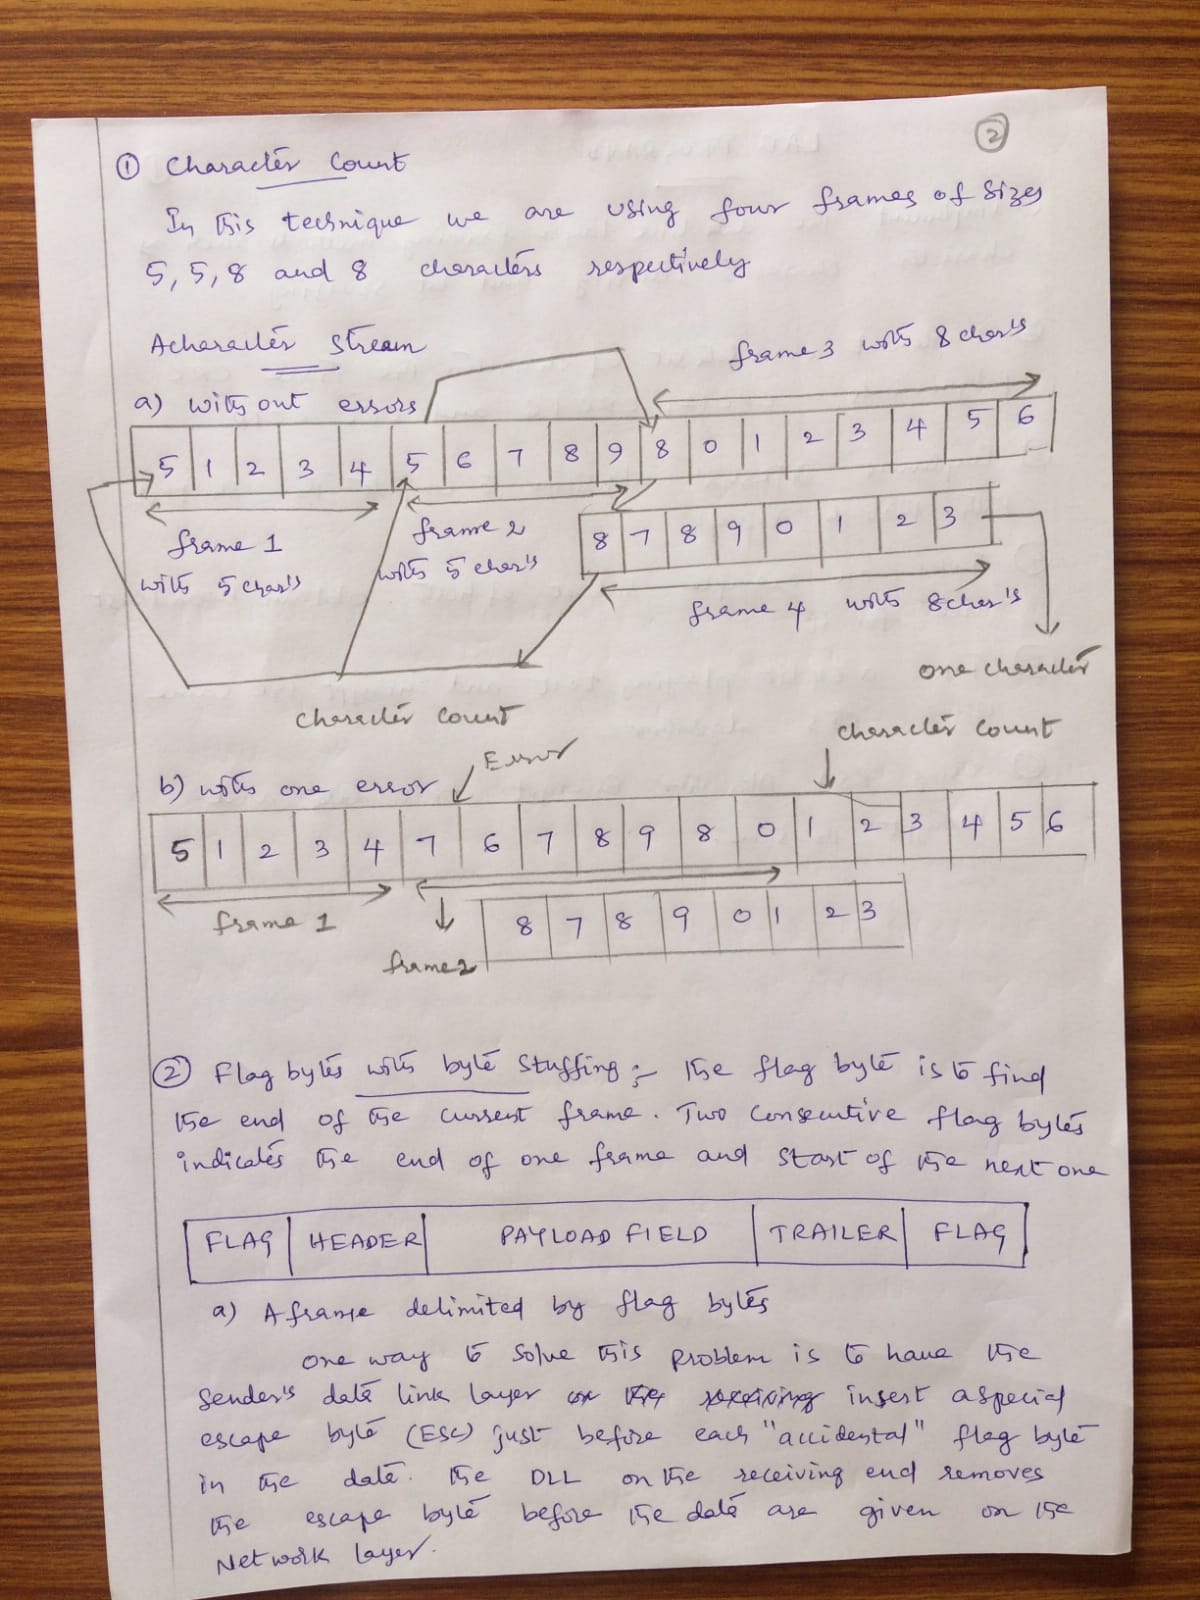 ②
① Character Count
In this technique we are using four frames of sizes
5, 5, 8 and 8 characters respectively
A character stream
frame 3 with 8 char's
a) without errors
5 1 2 3 4 5 6 7 8 9 8 0 1 2 3 4 5 6
frame 1
with 5 char's
frame 2
with 5 char's
8 7 8 9 0 1 2 3
frame 4 with 8 char's
one character
Character Count
Character Count
Error
b) with one error
5 1 2 3 4 7 6 7 8 9 8 0 1 2 3 4 5 6
frame 1
8 7 8 9 0 1 2 3
frame 2
② Flag bytes with byte stuffing :- The flag byte is to find
the end of the current frame. Two consecutive flag bytes
indicates the end of one frame and start of the next one
FLAG HEADER PAYLOAD FIELD TRAILER FLAG
a) A frame delimited by flag bytes
one way to solve this problem is to have the
sender's data link layer on the receiving insert a special
escape byte (ESC) just before each "accidental" flag byte
in the data. The DLL on the receiving end removes
the escape byte before the data are given on the
Network layer.